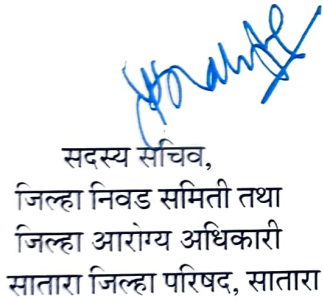 सदस्य सचिव,
जिल्हा निवड समिती तथा
जिल्हा आरोग्य अधिकारी
सातारा जिल्हा परिषद, सातारा